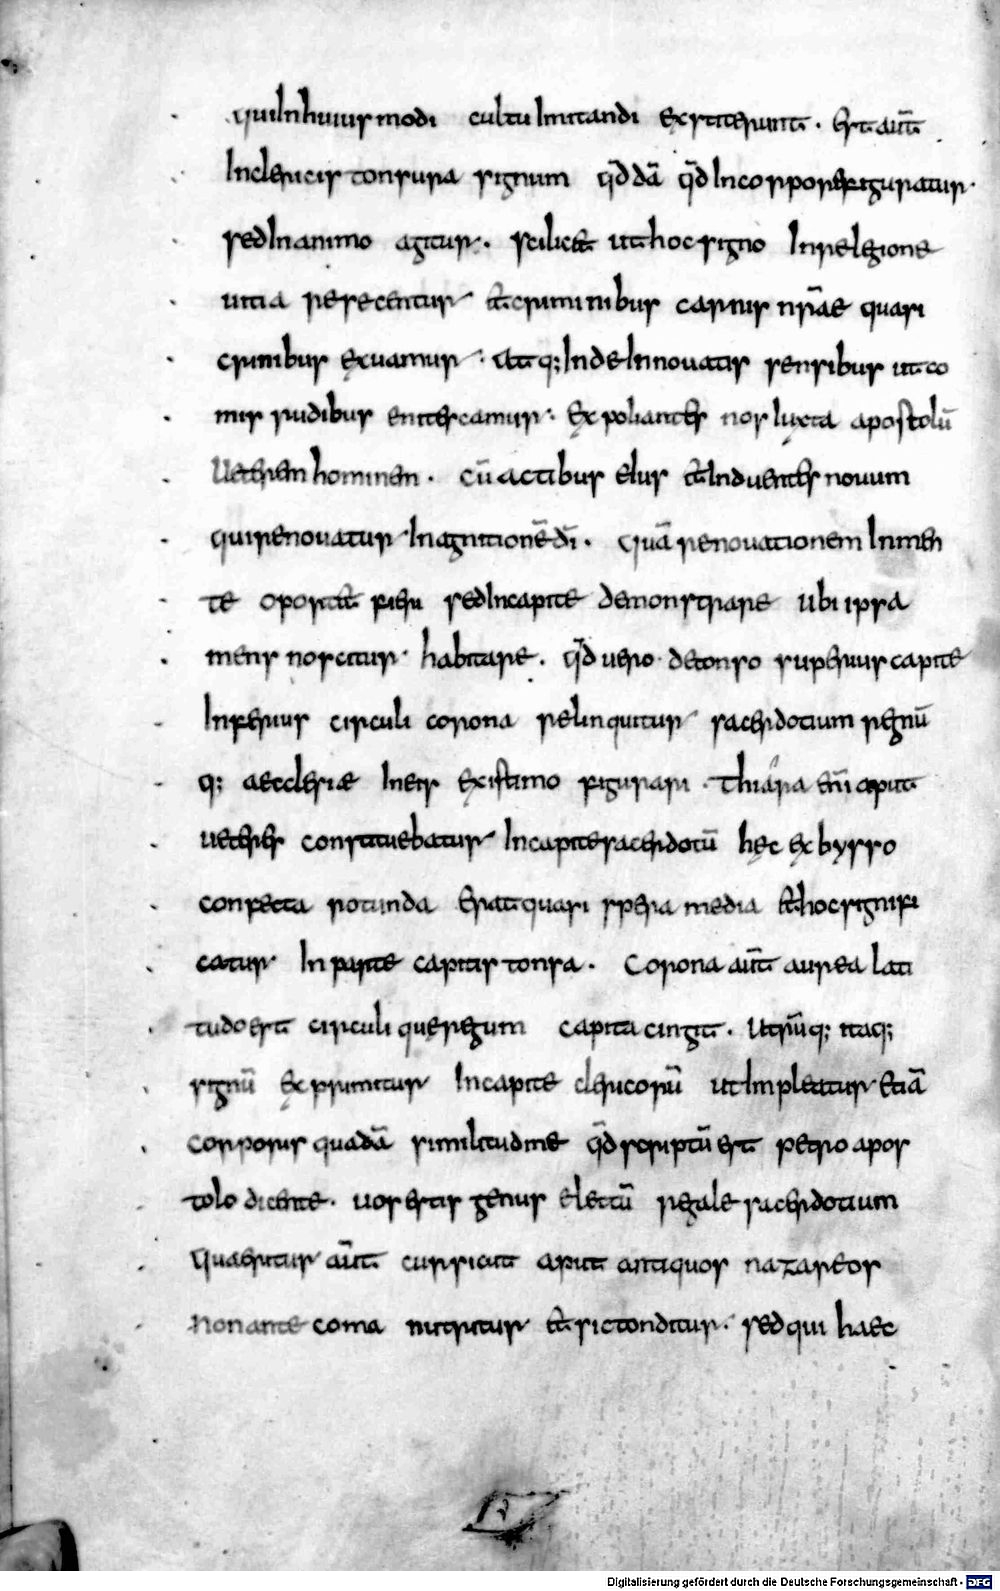 quiInhuiusmodi cultu Imitandi exstiterunt . Est aut̄
Inclericis tonsura signum qd̄dā qd̄Incorporefiguratur.
sedInanimo agitur . scilicet uthocsigno Inrelegione
uitia resecentur et criminibus carnis nr̄ae quasi
crinibus exuamur . atq; IndeInnouatis sensibus ut co
mis rudibus enitescamur . Expoliantes nos Iuxta apostolū
Ueterem hominem . cū actibus eIus et Induentes nouum
quirenouatur Inagnitionē dī . Quā renouationem Inmen
te oportet fieri sedIncapite demonstrare Ubi ipsa
mens noscitur habitare . qd̄ uero detonso superius capite
Inferius circuli corona relinquitur sacerdotium regnū
q; aecclesiae Ineis existimo figurari . Thiara enī aput
ueteres constituebatur Incapitesacerdotū hęc ex byrro
confecta rotunda eratquasi spera media et hocsignifi
catur In parte capitis tonsa . Corona aut̄ aurea lati
tudo est circuli quęregum capita cingit . Utrūq; itaq;
signū exprimitur Incapite clericorū ut Impleatur etiā
corporis quadā similitudine qd̄scriptū est petro apos
tolo dicente . uos estis genus electū regale sacerdotium
Quaeritur aut̄ cursicut aput antiquos nazareos
Nonante coma nutritur et sictonditur . sedqui haec
Digitalisierung gefördert durch die Deutsche Forschungsgemeinschaft - DFG